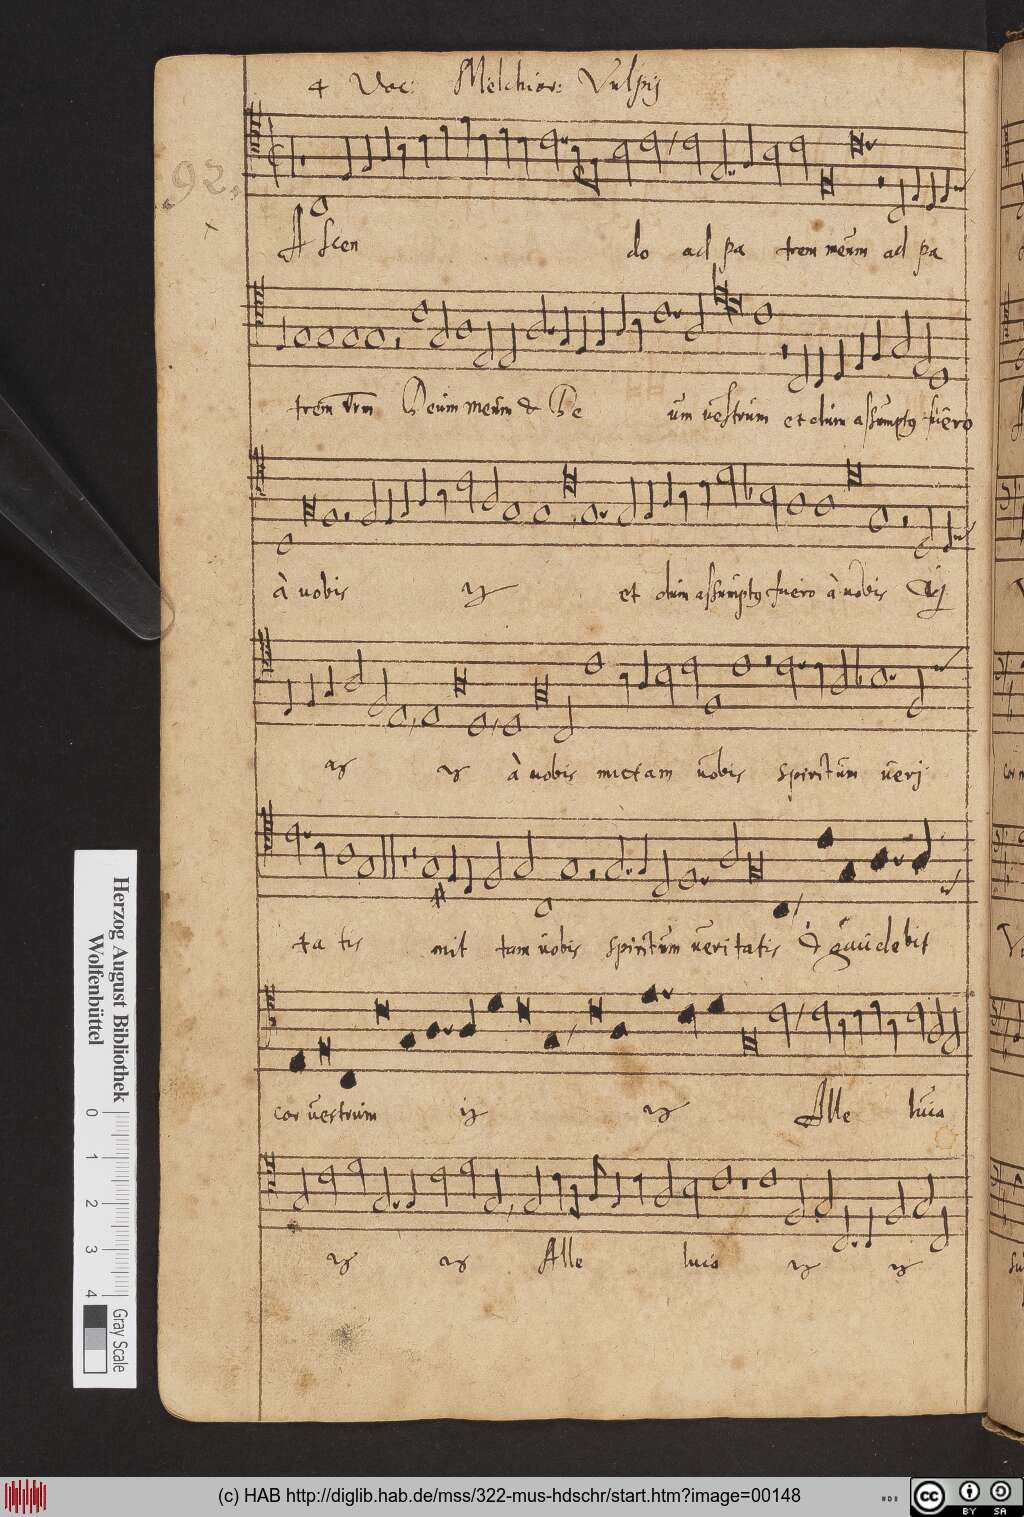 4 Voc: Melchior: Vulpij
92.
Ascen do ad pa trem meum ad pa
trem vrm Deum meum & De um vestrum et dum assumptꝰ fuero
à vobis ij et dum assumptꝰ fuero à vobis ij
ij ij à vobis mittam vobis spiritum veri
ta tis mit tam vobis spiritum veri tatis & gaudebit
cor vestrum ij ij Alle luia
ij ij Alle luia ij ij
Herzog August Bibliothek
Wolfenbüttel
0 1 2 3 4
Gray Scale
(c) HAB http://diglib.hab.de/mss/322-mus-hdschr/start.htm?image=00148
cc BY SA